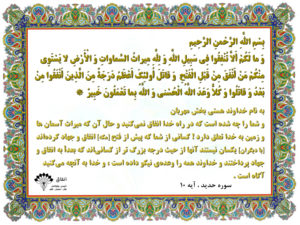 بِسْمِ اللَّهِ الرَّحْمنِ الرَّحیمِ
وَ ما لَكُمْ أَلاَّ تُنْفِقُوا فی سَبیلِ اللَّهِ وَ لِلَّهِ میراثُ السَّماواتِ وَ الْأَرْضِ لا یَسْتَوی
مِنْكُمْ مَنْ أَنْفَقَ مِنْ قَبْلِ الْفَتْحِ وَ قاتَلَ أُولئِكَ أَعْظَمُ دَرَجَةً مِنَ الَّذینَ أَنْفَقُوا مِنْ
بَعْدُ وَ قاتَلُوا وَ كُلاًّ وَعَدَ اللَّهُ الْحُسْنی وَ اللَّهُ بِما تَعْمَلُونَ خَبیرٌ
به نام خداوند هستی بخش مهربان
و شما را چه شده است که در راه خدا انفاق نمی‌کنید و حال آن که میراث آسمان ها
و زمین به خدا تعلق دارد ؟ کسانی از شما که پیش از فتح [مکه] انفاق و جهاد کرده‌اند
[با دیگران] یکسان نیستند آنها از حیث درجه بزرگ تر از کسانی‌اند که بعداً به انفاق و
جهاد پرداختند ، و خداوند همه را وعده‌ی نیکو داده است ، و خدا به آنچه می‌کنید
آگاه است .
سوره حدید ، آیه ۱۰
انفاق